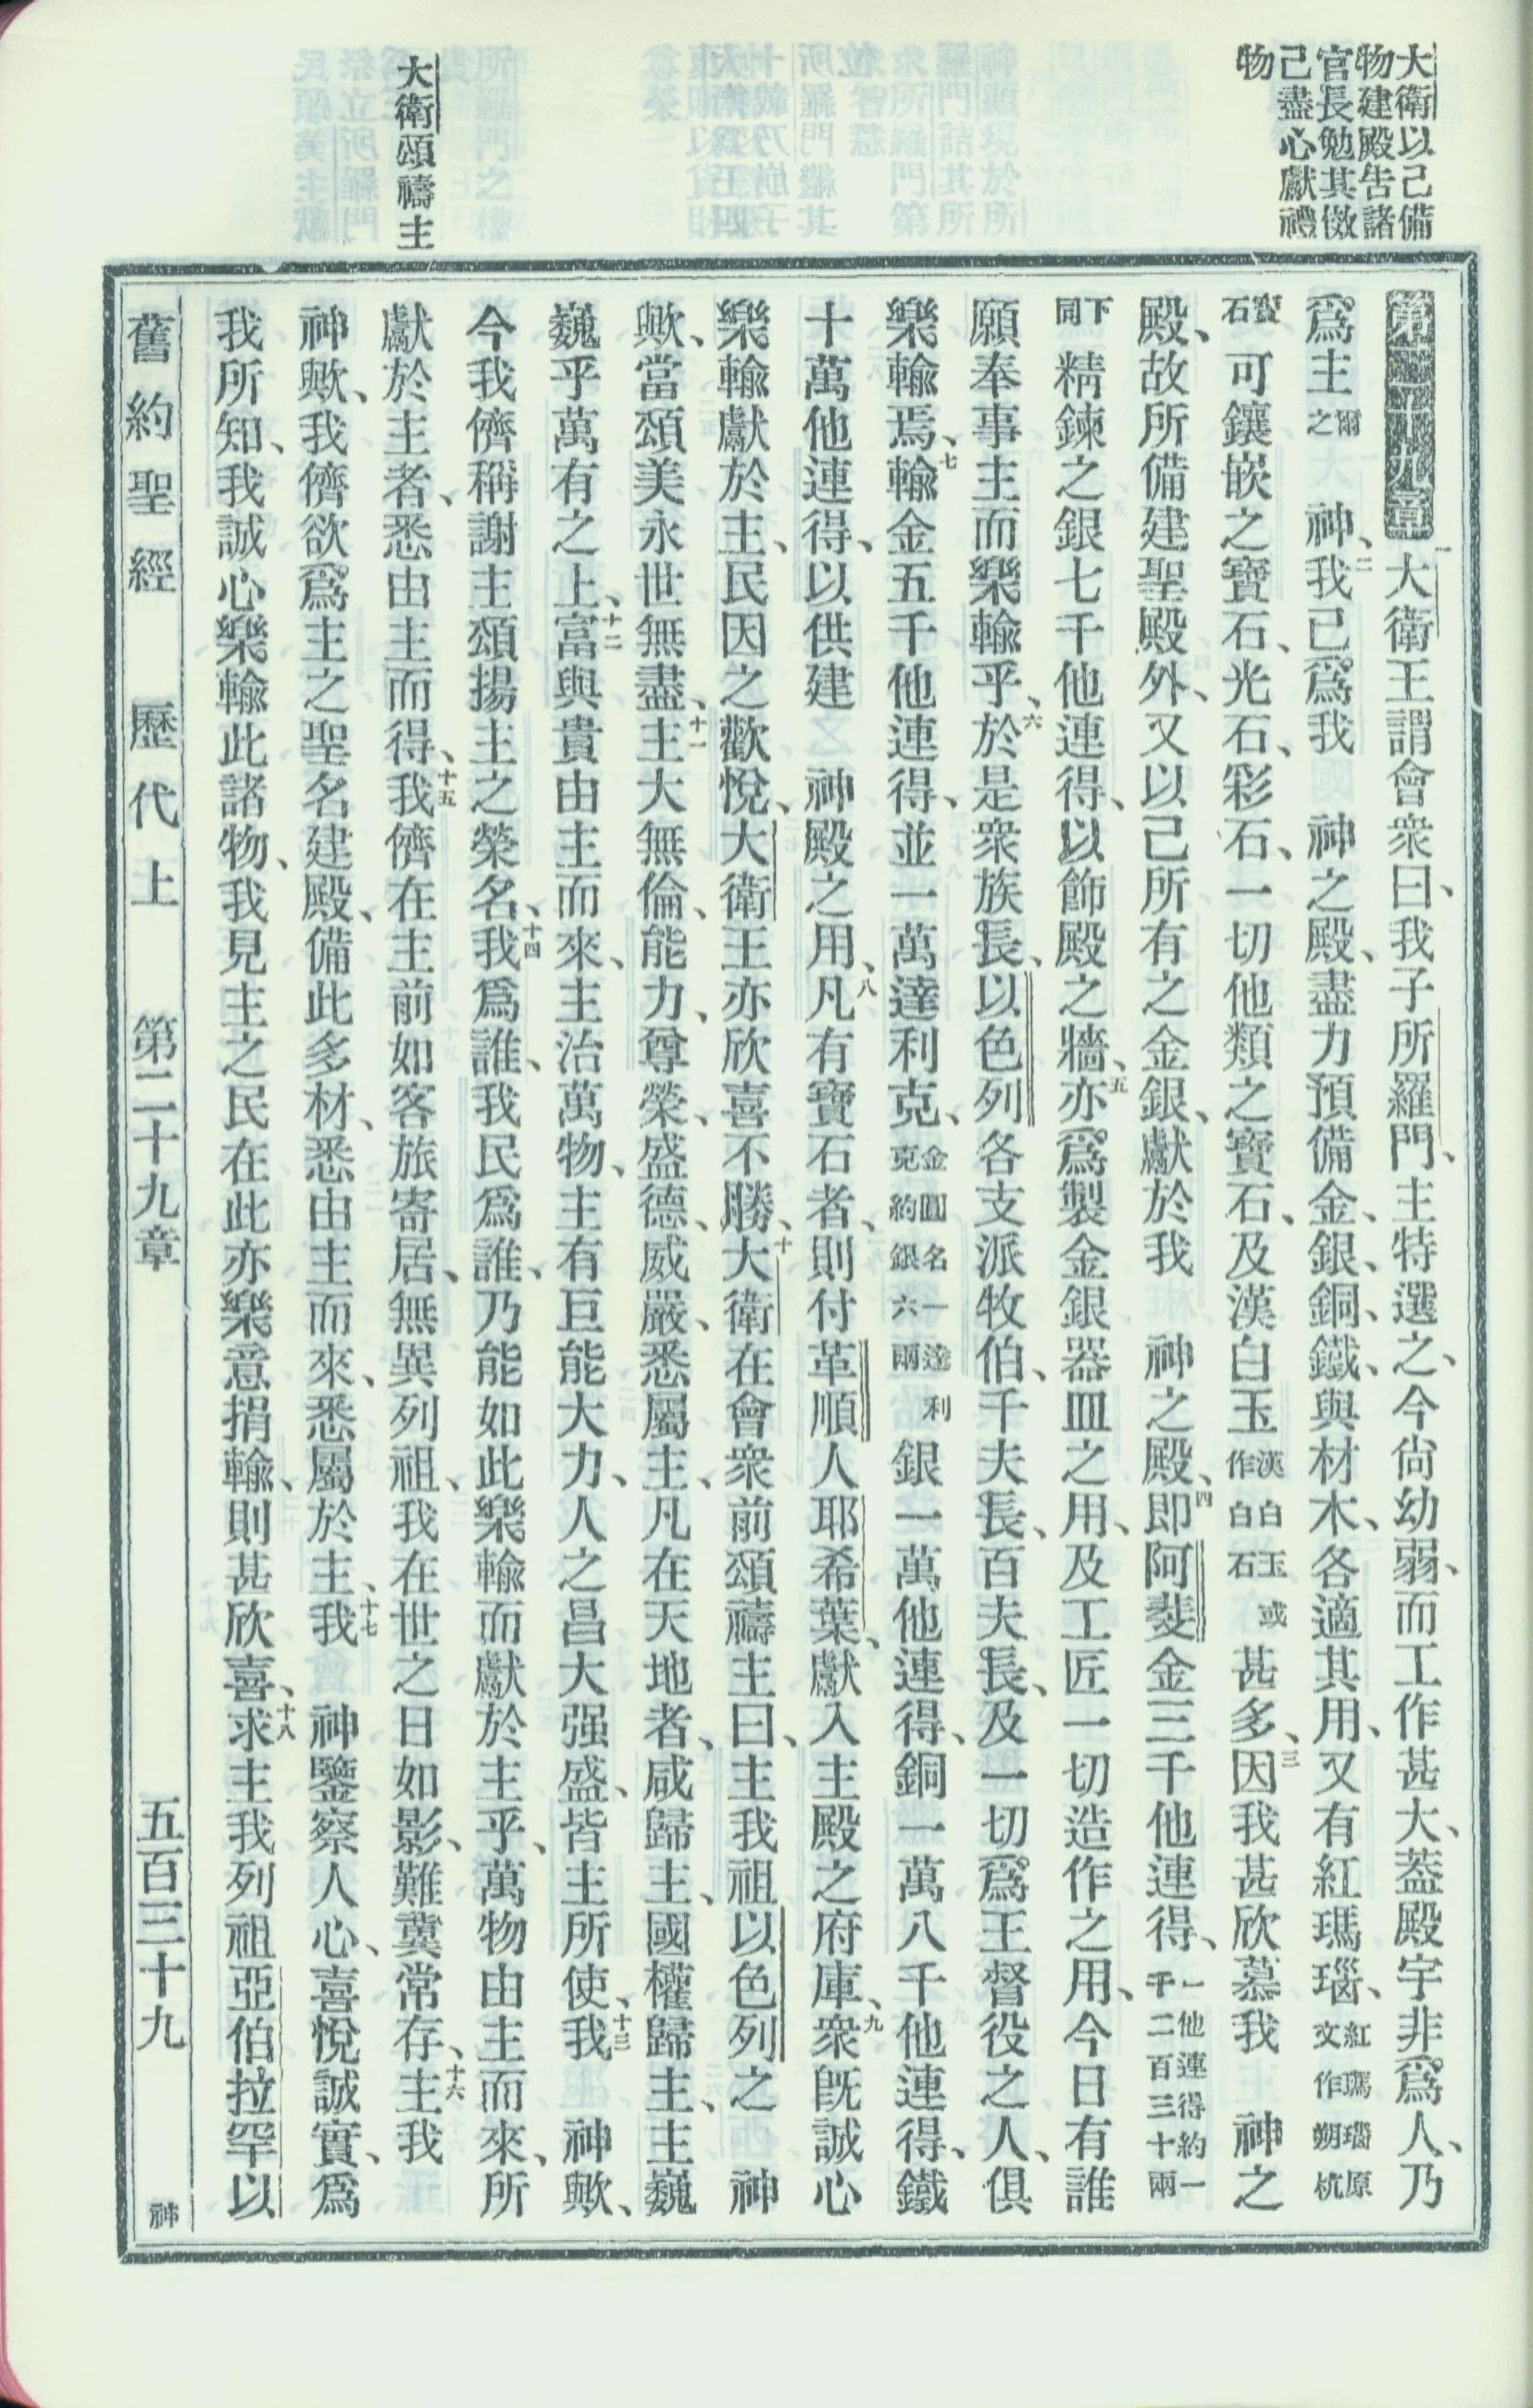 大衛以己備
物建殿告諸
官長勉其傚
己盡心獻禮
物
大衛頌禱主
第二十九章 一大衛王謂會衆曰、我子所羅門、主特選之、今尙幼弱、而工作甚大、葢殿宇非爲人、乃
爲主爾之 神、二我已爲我 神之殿、盡力預備金、銀、銅、鐵、與材木、各適其用、又有紅瑪瑙、紅瑪瑙原文作朔杭
寶石下同可鑲嵌之寶石、光石、彩石、一切他類之寶石、及漢白玉漢白玉或作白石甚多、三因我甚欣慕我 神之
殿、故所備建聖殿外、又以己所有之金銀、獻於我 神之殿、四即阿斐金三千他連得、一他連得約一千二百三十兩
精鍊之銀七千他連得、以飾殿之牆、五亦爲製金銀器皿之用、及工匠一切造作之用、今日有誰
願奉事主而樂輸乎、六於是衆族長、以色列各支派牧伯、千夫長、百夫長、及一切爲王督役之人、俱
樂輸焉、七輸金五千他連得、並一萬達利克、金圓名一達利克約銀六兩銀一萬他連得、銅一萬八千他連得、鐵
十萬他連得、以供建 神殿之用、八凡有寶石者、則付革順人耶希葉、獻入主殿之府庫、九衆旣誠心
樂輸獻於主、民因之歡悅、大衛王亦欣喜不勝、十大衛在會衆前頌禱主曰、主我祖以色列之 神
歟、當頌美永世無盡、十一主大無倫、能力、尊榮、盛德、威嚴、悉屬主、凡在天地者、咸歸主、國權歸主、主巍
巍乎萬有之上、十二富與貴由主而來、主治萬物、主有巨能大力、人之昌大强盛、皆主所使、十三我 神歟、
今我儕稱謝主頌揚主之榮名、十四我爲誰、我民爲誰、乃能如此樂輸而獻於主乎、萬物由主而來、所
獻於主者、悉由主而得、十五我儕在主前如客旅寄居、無異列祖、我在世之日如影、難冀常存、十六主我
神歟、我儕欲爲主之聖名建殿、備此多材、悉由主而來、悉屬於主、十七我 神鑒察人心、喜悅誠實、爲
我所知、我誠心樂輸此諸物、我見主之民在此亦樂意捐輸、則甚欣喜、十八求主我列祖亞伯拉罕以
舊約聖經 歷代上 第二十九章 五百三十九 神